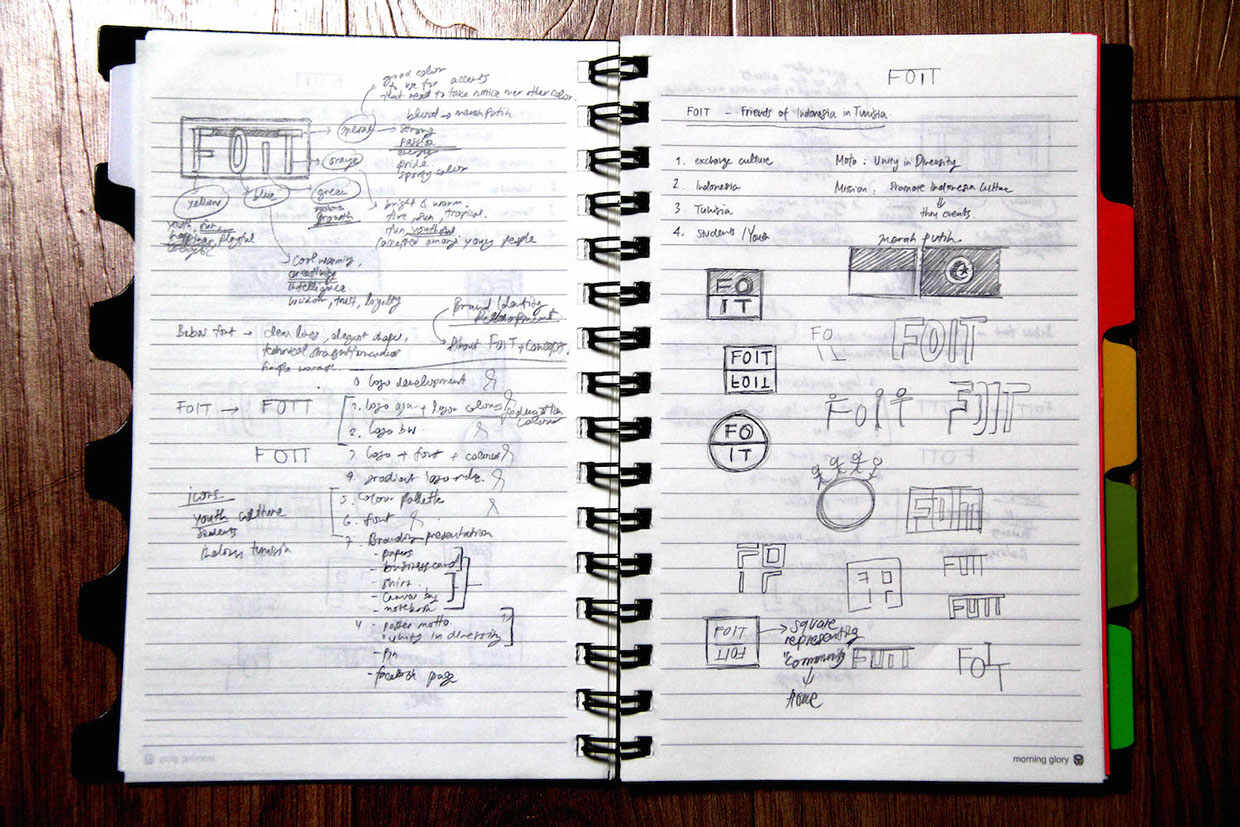 good color
to use for accents
that need to take notice over other color.
blood → merah putih
FOIT
strong
passion
energy
pride
sporty color
orange
yellow
blue
green
growth
bright & warm.
fire, sun, tropical.
fun, youthful
accepted among young people
happiness, playful
energetic
cool warming,
intelligence
wisdom, trust, loyalty
Brand Identity
Development
About FOIT + concept.
Bebas font → clean lines, elegant shapes,
technical straightforwardness
simple warmth
0 logo development
FOIT → FOIT
1. logo + logo colors
2. logo bw
FOIT
3. logo + font + colors
4. gradient logo
icons
5. colour pallette
youth culture
6. font
students
7. Branding presentation
tunisia
- papers
- business card
- shirt
- canvas bag
- notebook
- poster motto
"unity in diversity
- pin
- facebook page
FOIT
FOIT - Friends of Indonesia in Tunisia
1. exchange culture
Moto : Unity in Diversity
2. Indonesia
Mission : Promote Indonesia Culture
3 Tunisia
thru events
4. students / Youth
merah putih
FO
IT
FO
FOIT
FOIT
FOIT
FOIT
FOIT
FO
IT
FOIT
FO
IT
FO
IT
FOIT
FOIT
FOIT
FOIT
→ square
representing
"community
home
FOIT
FOIT
morning glory